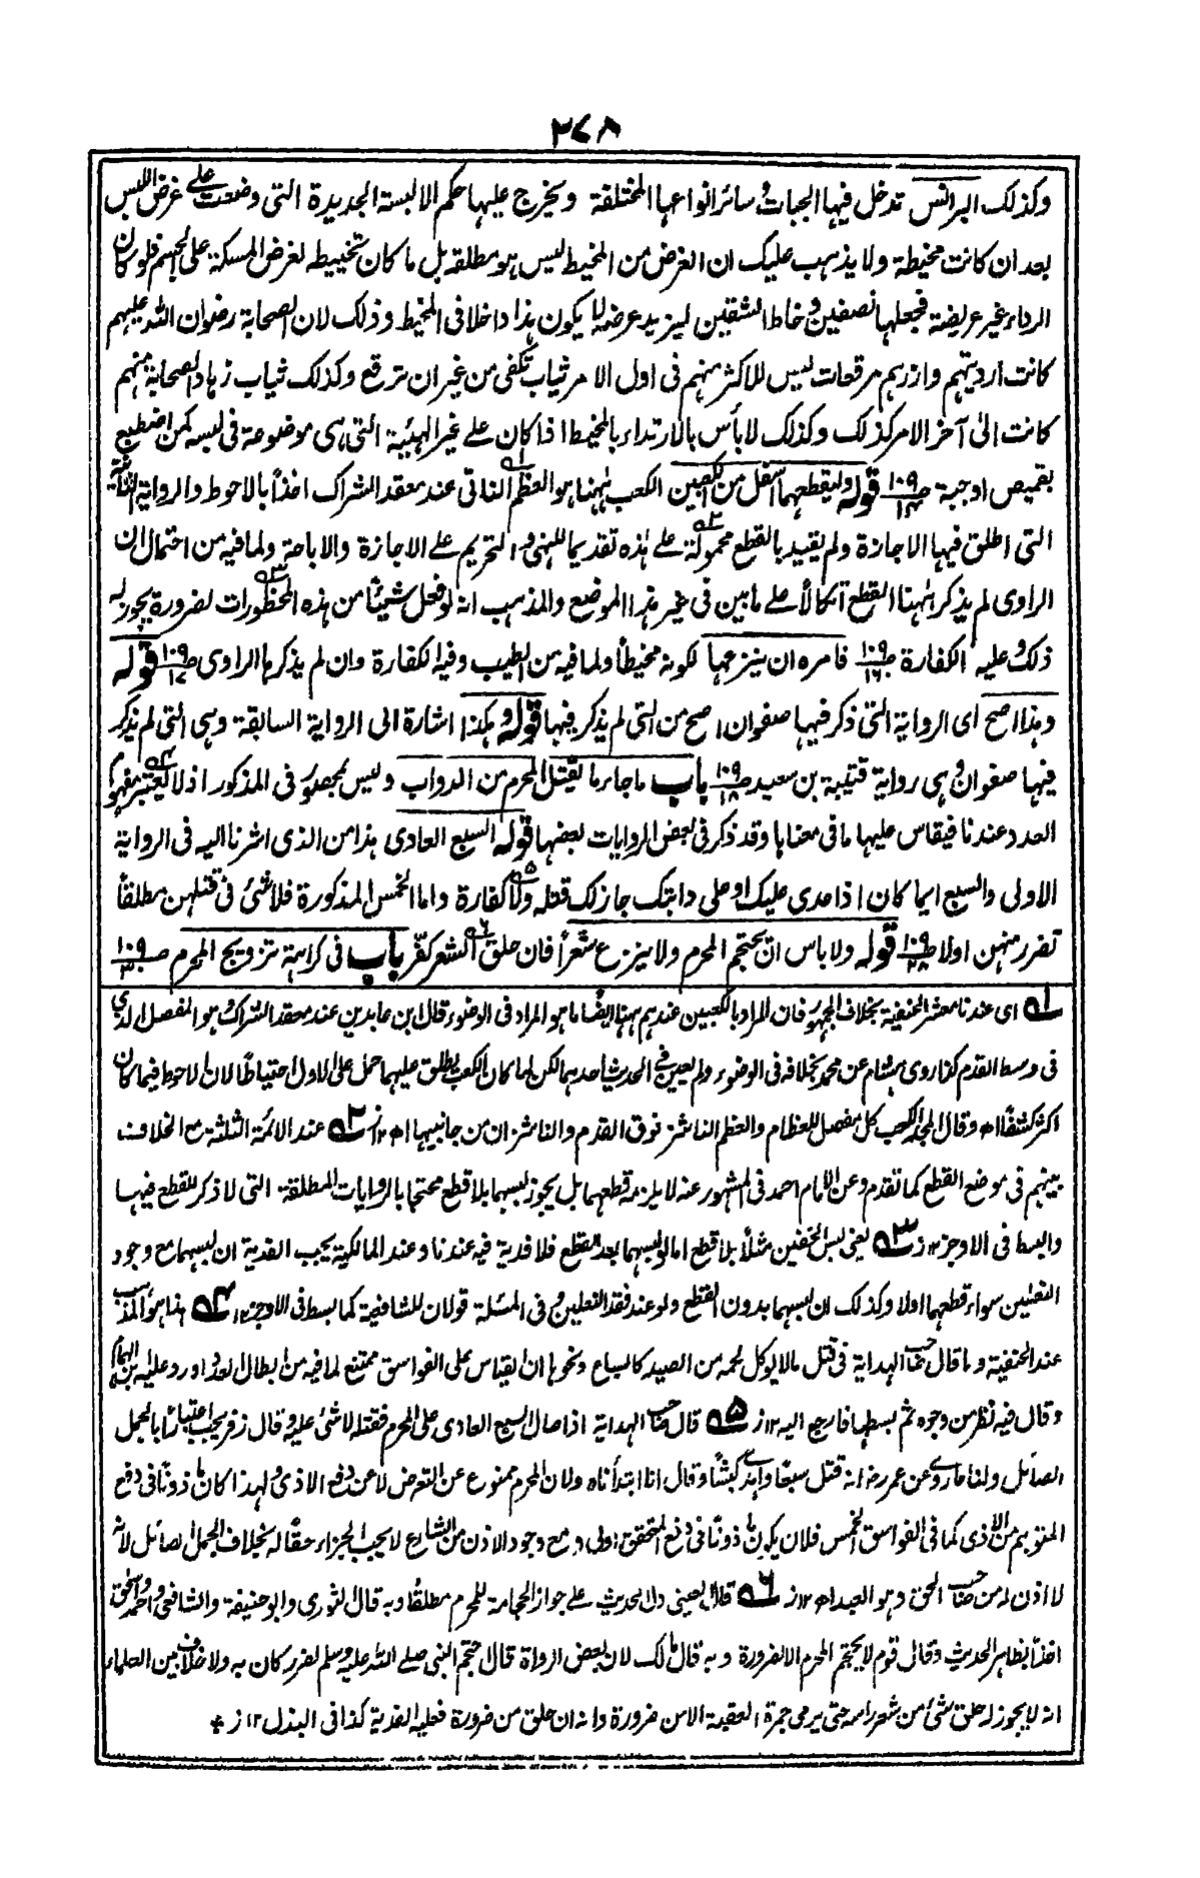 ٢٧٨
وكذلك البرانس تدخل فيها الجبات وسائر انواعها المختلفة ويخرج عليها حكم الالبسة الجديدة التى وضعت على غرض اللبس
بعد ان كانت مخيطة ولا يذهب عليك ان الغرض من المخيط ليس هو مطلقه بل ما كان تخييطه لغرض المسكة على الجسم فلو كان
الرداء غير عريضة فجعلها نصفين وخاط الشقين ليزيد عرضه لا يكون هذا داخلا فى المخيط وذلك لان الصحابة رضوان الله عليهم
كانت ارديتهم وازرهم مرقعات ليس للاكثر منهم فى اول الامر ثياب تكفى من غير ان ترقع وكذلك ثياب زهاد الصحابة منهم
كانت الى آخر الامر كذلك وكذلك لا بأس بالارتداء بالمخيط اذا كان على غير الهيئة التى هى موضوعة فى لبسه كمن اضطبع
بقميص او جبة صـ١٠٩/١٤ قوله وليقطعهما اسفل من الكعبين الكعب ههنا هو العظم الناتى عند معقد الشراك اخذاً بالاحوط والرواية الثانية
التى اطلق فيها الاجازة ولم يقيد بالقطع محمولة على هذه تقديما للنهى والتحريم على الاجازة والاباحة ولما فيه من احتمال ان
الراوى لم يذكر ههنا القطع اتكالاً على ما بين فى غير هذا الموضع والمذهب انه لو فعل شيئاً من هذه المحظورات لضرورة يجوز له
ذلك وعليه الكفارة صـ١٠٩/١٦ فامره ان ينزعها لكونه مخيطاً ولما فيه من الطيب وفيه الكفارة وان لم يذكرها الراوى صـ١٠٩/١٧ قوله
وهذا اصح اى الرواية التى ذكر فيها صفوان اصح من التى لم يذكر فيها قوله وهكذا اشارة الى الرواية السابقة وهى التى لم يذكر
فيها صفوان وهى رواية قتيبة بن سعيد صـ١٠٩/١٨ باب ما جاء ما يقتل المحرم من الدواب وليس بمحصور فى المذكور اذ لا يعتبر مفهوم
العدد عندنا فيقاس عليها ما فى معناها وقد ذكر فى بعض الروايات بعضها قوله السبع العادى هذا من الذى اشرنا اليه فى الرواية
الاولى والسبع ايما كان اذا عدى عليك او على دابتك جاز لك قتله ولا كفارة واما الخمس المذكورة فلا شئ فى قتلهن مطلقاً
تضرر منهن اولا صـ١٠٩/٢٨ قوله ولا باس ان يحتجم المحرم ولا ينزع شعراً فان حلق الشعر كفّر باب فى كراهة تزويج المحرم صـ١٠٩/٣٠
ا‍ه اى عندنا معشر الحنفية بخلاف الجمهور فان المراد بالكعبين عندهم ههنا ايضا ما هو المراد فى الوضوء قال ابن عابدين عند معقد الشراك وهو المفصل الذى
فى وسط القدم كذا روى هشام عن محمد بخلافه فى الوضوء ولم يعين فى الحديث احدهما لكن لما كان الكعب يطلق عليهما حمل على الاول احتياطا لان الاحوط فيما كان
اكثر كشفا اه وقال المجد الكعب كل مفصل للعظام والعظم الناشز فوق القدم والناشزان من جانبيها اه ١٢ز ٢ه عند الائمة الثلثة مع الخلاف
بينهم فى موضع القطع كما تقدم وعن الامام احمد فى المشهور عنه لا يلزمه قطعهما بل يجوز لبسهما بلا قطع محتجا بالروايات المطلقة التى لا ذكر للقطع فيها
والبسط فى الاوجز ١٢ز ٣ه يعنى لبس الخفين مثلاً بلا قطع اما لو لبسهما بعد القطع فلا فدية فيه عندنا وعند المالكية يجب الفدية ان لبسهما مع وجود
النعلين سواء قطعهما اولا وكذلك ان لبسهما بدون القطع ولو عند فقد النعلين وفى المسئلة قولان للشافعية كما بسط فى الاوجز ١٢ ٤ه هذا هو المذهب
عند الحنفية وما قال صاحب الهداية فى قتل ما لا يوكل لحمه من الصيد كالسباع ونحوها ان القياس على الفواسق ممتنع لما فيه من ابطال العدد اورد عليه ابن الهمام
وقال فيه نظر من وجوه ثم بسطها فارجع اليه ١٢ز ٥ه قال صاحب الهداية اذا صال السبع العادى على المحرم فقتله لا شئ عليه وقال زفر يجب اعتبارًا بالجمل
الصائل ولنا ما روى عن عمر رض انه قتل سبعًا واهدى كبشًا وقال انا ابتدأناه ولان المحرم ممنوع عن التعرض لا عن دفع الاذى ولهذا كان ماذونًا فى دفع
المتوهم من الاذى كما فى الفواسق الخمس فلان يكون ماذونًا فى دفع المتحقق اولى ومع وجود الاذن من الشارع لا يجب الجزاء حقًا له بخلاف الجمل الصائل لانه
لا اذن له من صاحب الحق وهو العبد اه ١٢ز ٦ه قال العينى دل الحديث على جواز الحجامة للمحرم مطلقًا وبه قال الثورى وابو حنيفة والشافعى واحمد واسحق
اخذًا بظاهر الحديث وقال قوم لا يحتجم المحرم الا لضرورة وبه قال مالك لان بعض الرواة قال احتجم النبى صلى الله عليه وسلم لضرر كان به ولا خلاف بين العلماء
انه لا يجوز له حلق شئ من شعر راسه حتى يرمى جمرة العقبة الا من ضرورة وانه ان حلق من ضرورة فعليه الفدية كذا فى البذل ١٢ز *